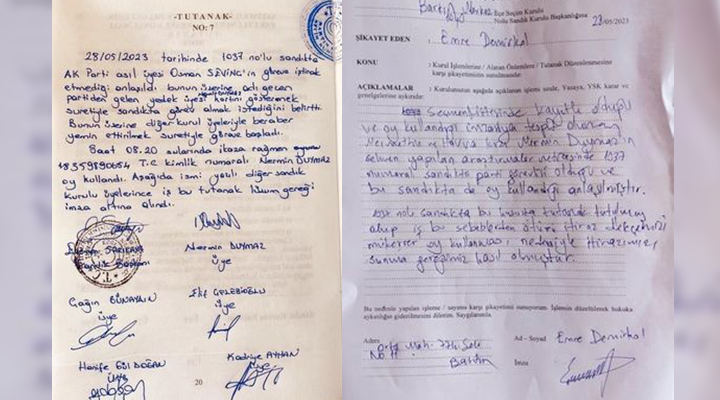 -TUTANAK-
NO: 7
28/05/2023 tarihinde 1037 no'lu sandıkta
AK Parti asil üyesi Osman SEVİNÇ'in göreve iştirak
etmediği anlaşıldı. bunun üzerine adı geçen
partiden gelen yedek üyesi kartını göstererek
suretiyle sandıkta görev almak istediğini belirtti.
Bunun üzerine diğer kurul üyeleriyle beraber
yemin ettirilmek suretiyle göreve başladı.
Saat 08.20 sularında ikaza rağmen
18359890654 T.C kimlik numaralı Nermin DUYMAZ
oy kullandı. Aşağıda ismi yazılı diğer sandık
kurulu üyelerince iş bu tutanak lüzum gereği
imza altına alındı.
Nermin DUYMAZ
Üye
Sandık Başkanı
Çağın GÜNAYDIN
Üye
Elif
Üye
Hanife GÜL DOĞAN
Üye
Kadriye AYHAN
Üye
20
Bartın Merkez İlçe Seçim Kurulu
Nolu Sandık Kurulu Başkanlığına
/05/2023
ŞİKAYET EDEN : Emre Demirkol
KONU : Kurul İşlemlerine / Alınan Önlemlere / Tutanak Düzenlenmesine
karşı şikayetimin sunulmasıdır.
AÇIKLAMALAR : Kurulunuzun aşağıda açıklanan işlemi usule, Yasaya, YSK karar ve
genelgelerine aykırıdır.
seçmen listesinde kayıtlı olduğu
ve oy kullandığı imzasıyla tespit olunan
Nermin Duymaz'ın
yapılan araştırmalar neticesinde 1037
numaralı sandıkta parti görevlisi olduğu ve
bu sandıkta da oy kullandığı anlaşılmıştır.
1037 nolu sandıkta bu hususta tutanak tutulmuş
olup iş bu sebeplerden ötürü itiraz
mükerrer oy kullanması nedeniyle itirazımızı
sunma gereğimiz hasıl olmuştur.
Bu nedenle yapılan işleme / sayıma karşı şikayetimi sunuyorum. İşlemin düzeltilerek hukuka
aykırılığın giderilmesini dilerim. Saygılarımla.
Adres
Orta Mah.
No: 11
Bartın
Ad - Soyad Emre Demirkol
İmza